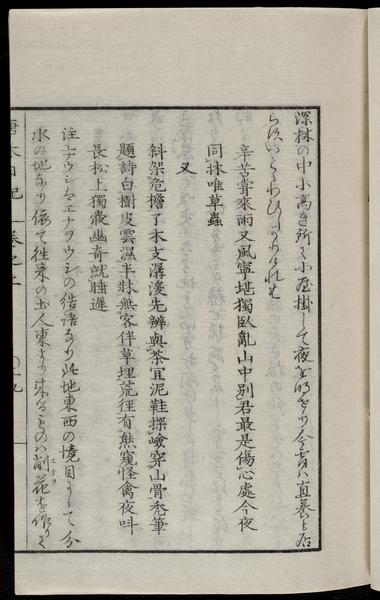 深林の中小高き所に小屋掛して夜を明せり今宵ハ直養も居
らすいとゝわひしかりけれは
辛苦嘗來雨又風寧堪獨臥亂山中別君最是傷心處今夜
同牀唯草蟲
又
斜架危擔了木支潺湲先辨與茶宜泥鞋探嶮穿山骨禿筆
題詩白樹皮雲濕半牀無客伴草埋荒徑有熊窺怪禽夜叫
長松上獨寂幽奇就睡遲
注エナウシハエナヲウシの結語なり此地東西の境目にして分
水の地なり依て往來の土人東より來るものハ削花を作りて
エナヲ